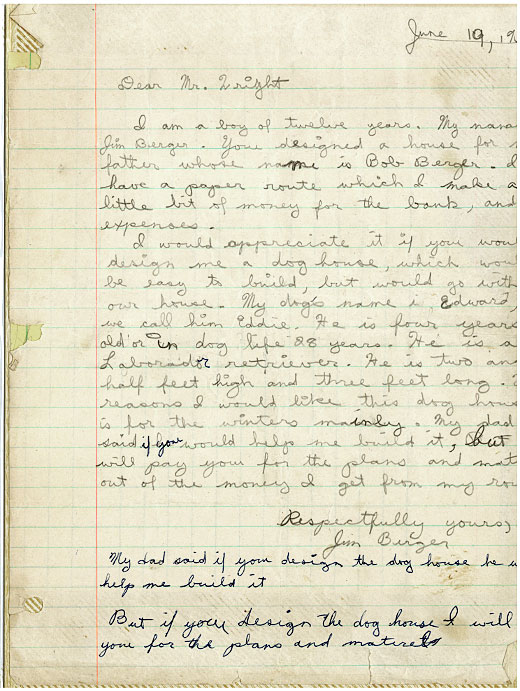 June 19, 19
Dear Mr. Wright
I am a boy of twelve years. My name
Jim Berger. You designed a house for
father whose name is Bob Berger. I
have a paper route which I make a
little bit of money for the bank, and
expenses.
I would appreciate it if you wou
design me a dog house, which wou
be easy to build, but would go with
our house. My dog's name i Edward,
we call him Eddie. He is four years
old or in dog life 28 years. He is a
Laborador retriever. He is two and
half feet high and three feet long.
reasons I would like this dog hous
is for the winters mainly. My dad
said if you would helps me build it, but
will pay you for the plans and mat
out of the money I get from my rou
Respectfully yours,
Jim Berger
My dad said if you design the dog house he w
help me build it
But if you design the dog house I will
you for the plans and